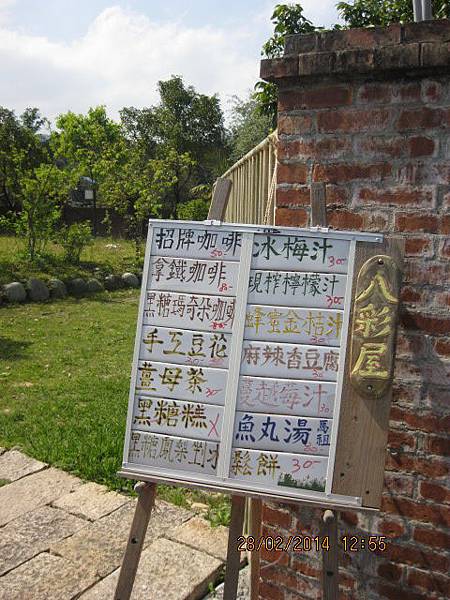 招牌咖啡
50
拿鐵咖啡
80
黑糖瑪奇朵咖啡
手工豆花
30
薑母茶
30
黑糖糕 X
黑糖鳳梨
冰梅汁
30
現榨檸檬汁
30
蜂蜜金桔汁
30
麻辣香豆腐
30
蔓越梅汁
30
魚丸湯 馬祖
30
鬆餅 30
八彩屋
28/02/2014 12:55